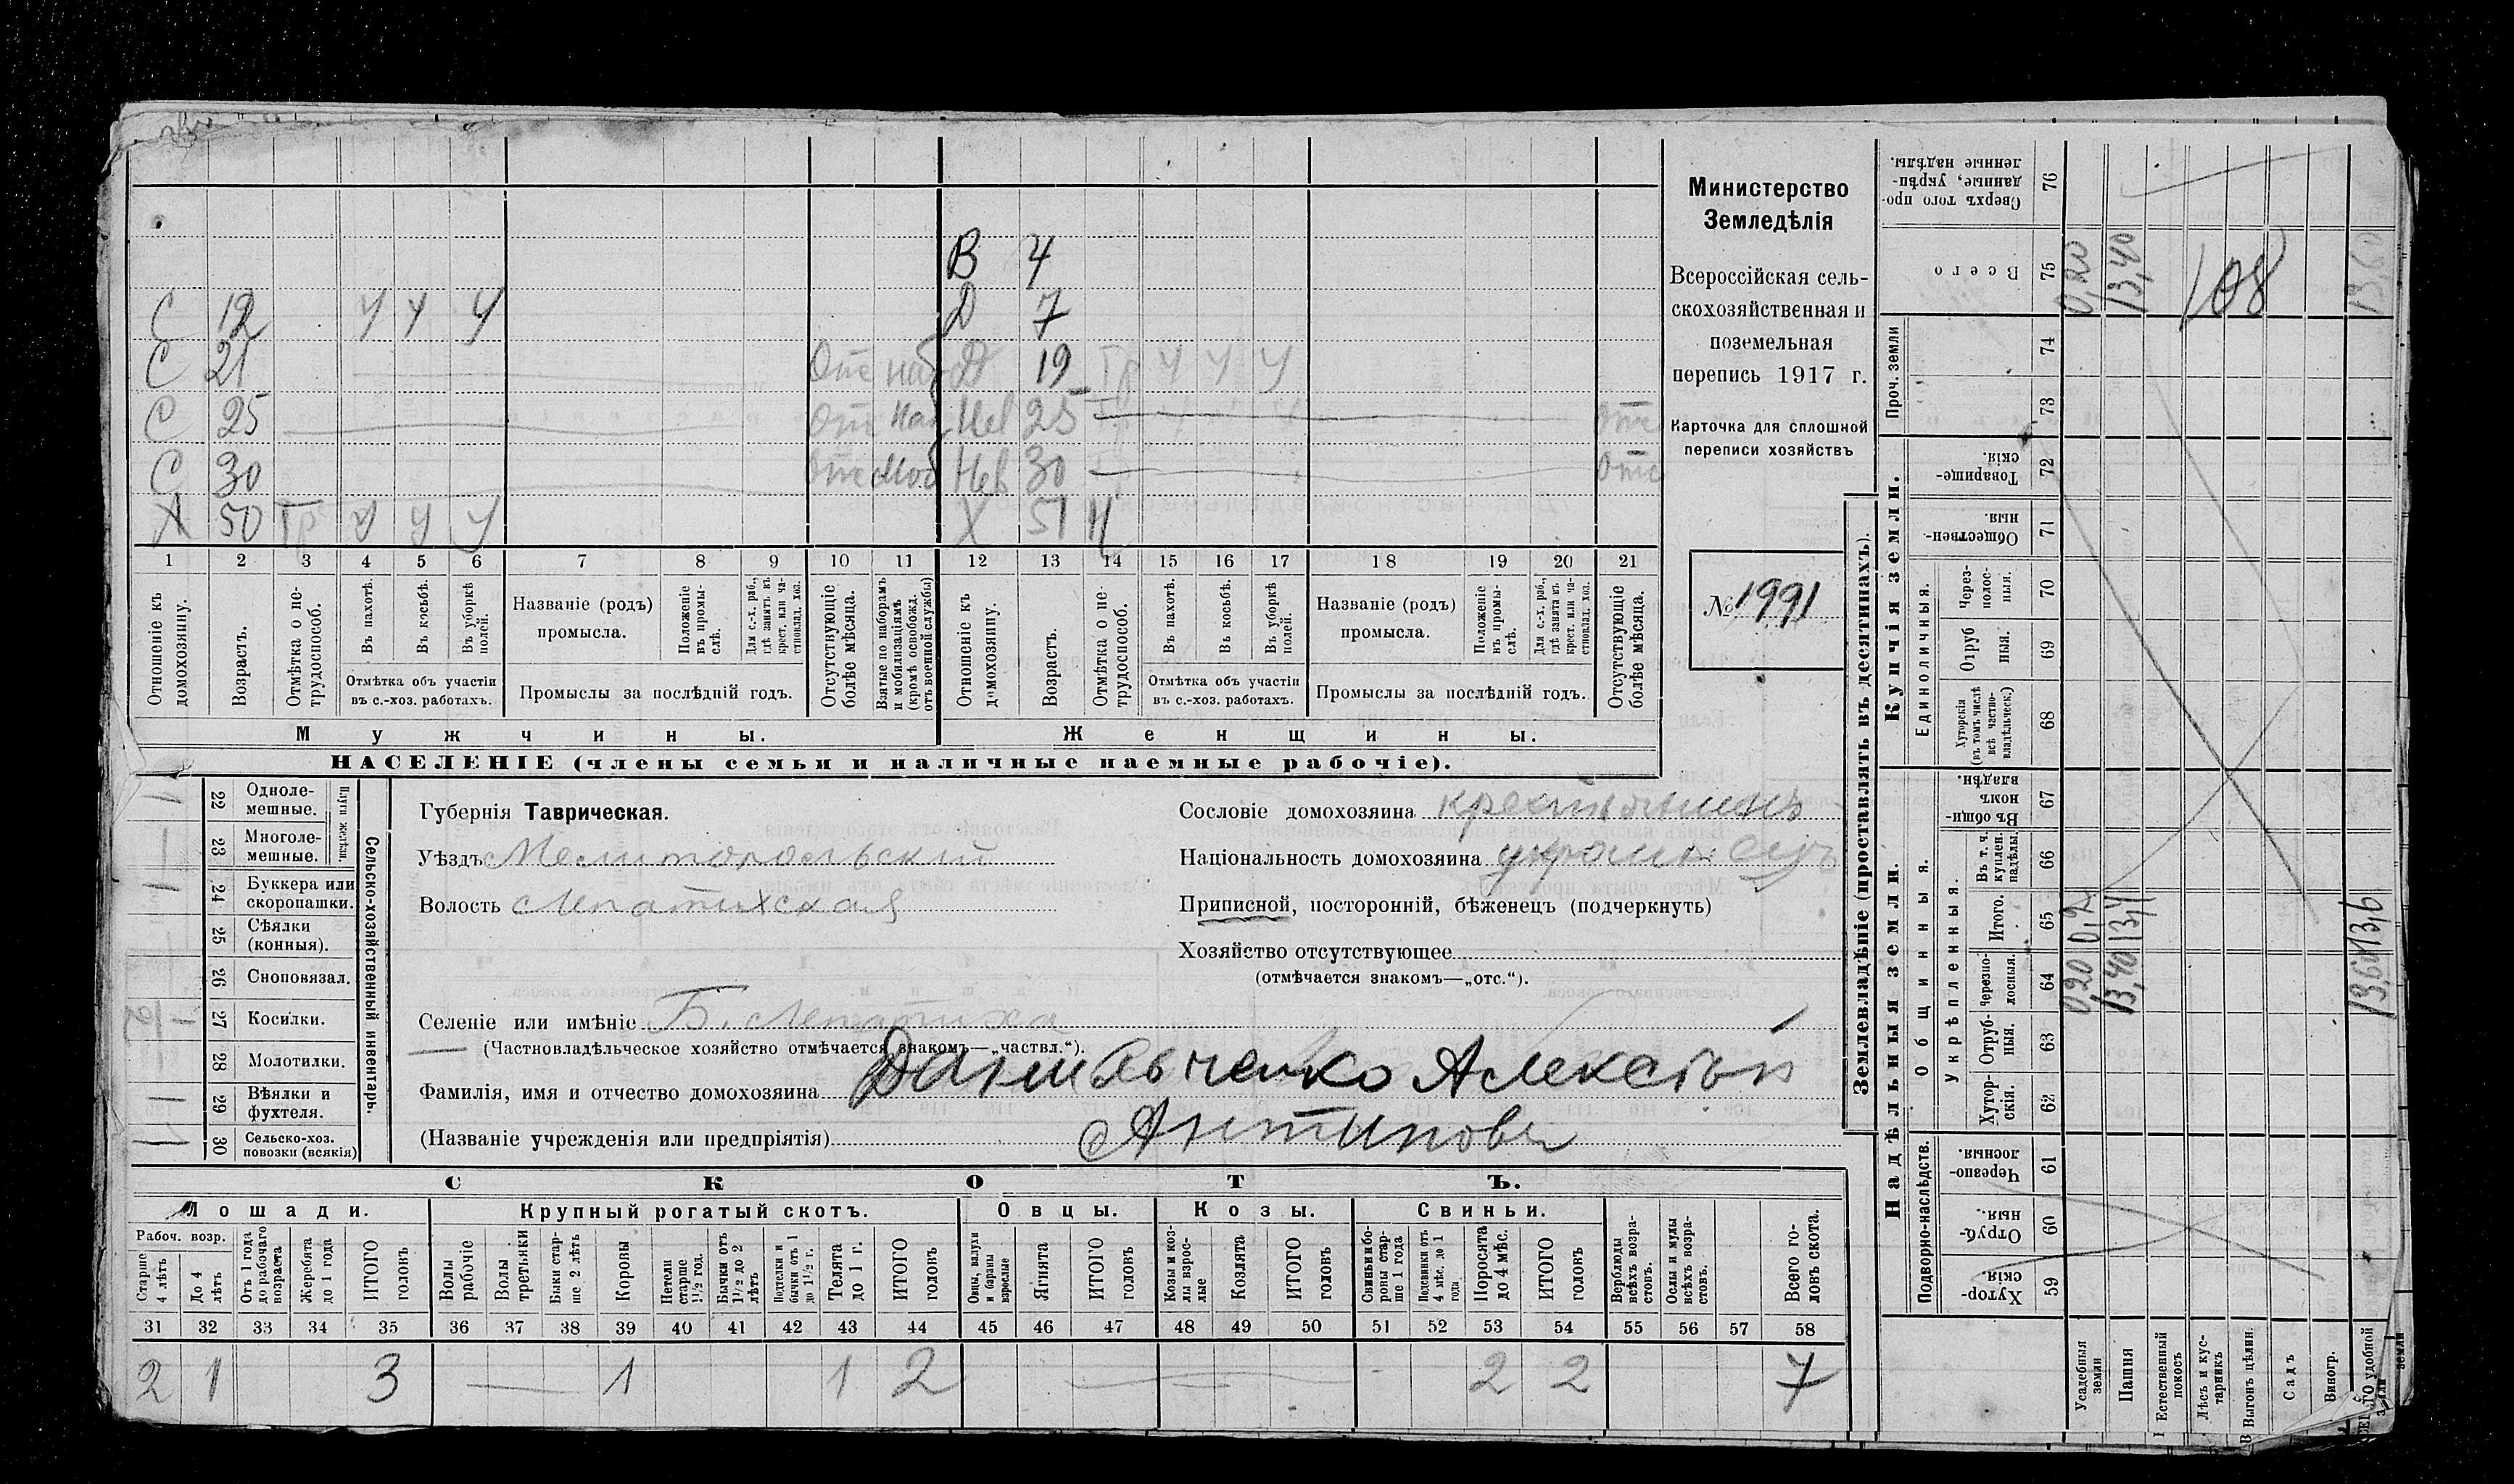 В 4
С 12 У У У Д 7
С 21 Отс наб Д 19 Гр У У У
С 25 Отс Наб Нев 25 Отс
С 30 Отс Моб Нев 30 Отс
Х 50 Гр У У У Х 51 Н
1 2 3 4 5 6 7 8 9 10 11 12 13 14 15 16 17 18 19 20 21
Отношеніе къ домохозяину.
Возрастъ.
Отмѣтка о нетрудоспособ.
Въ пахотѣ.
Въ косьбѣ.
Въ уборкѣ полей.
Отмѣтка объ участіи
въ с.-хоз. работахъ.
Названіе (родъ)
промысла.
Положеніе въ промыслѣ.
Для с.-х. раб., гдѣ занятъ въ крест. или частновлад. хоз.
Промыслы за послѣдній годъ.
Отсутствующіе болѣе мѣсяца.
Взятые по наборамъ и мобилизаціямъ (кромѣ освобожд. отъ военной службы)
Отношеніе къ домохозяину.
Возрастъ.
Отмѣтка о нетрудоспособ.
Въ пахотѣ.
Въ косьбѣ.
Въ уборкѣ полей.
Отмѣтка объ участіи
въ с.-хоз. работахъ.
Названіе (родъ)
промысла.
Положеніе въ промыслѣ.
Для с.-х. раб., гдѣ занята въ крест. или частновлад. хоз.
Промыслы за послѣдній годъ.
Отсутствующіе болѣе мѣсяца.
Мужчины.
Женщины.
НАСЕЛЕНІЕ (члены семьи и наличные наемные рабочіе).
Министерство
Земледѣлія
Всероссійская сель-
скохозяйственная и
поземельная
перепись 1917 г.
Карточка для сплошной
переписи хозяйствъ
№ 1991
22 Однолемешные.
23 Многолемешные.
Плуги желѣзн.
24 Буккера или скоропашки.
25 Сѣялки (конныя).
26 Сноповязал.
27 Косилки.
28 Молотилки.
29 Вѣялки и фухтеля.
30 Сельско-хоз. повозки (всякія)
Сельско-хозяйственный инвентарь.
Губернія Таврическая.
Уѣздъ Мелитопольскій
Волость Лепатихская
Селеніе или имѣніе Б. Лепатиха
(Частновладѣльческое хозяйство отмѣчается знакомъ—„частвл.“).
Фамилія, имя и отчество домохозяина Алексѣй
(Названіе учрежденія или предпріятія) Антиповъ
Сословіе домохозяина крестьянинъ
Національность домохозяина
Приписной, посторонній, бѣженецъ (подчеркнуть)
Хозяйство отсутствующее
(отмѣчается знакомъ—„отс.“).
СКОТЪ.
Лошади. Крупный рогатый скотъ. Овцы. Козы. Свиньи.
Рабоч. возр.
Старше 4 лѣтъ
До 4 лѣтъ
Отъ 1 года до рабочаго возраста
Жеребята до 1 года
ИТОГО головъ
Волы рабочіе
Волы третьяки
Быки старше 2 лѣтъ
Коровы
Нетели старше 1½ год.
Бычки отъ 1½ до 2 лѣтъ
Подтелки и бычки отъ 1 до 1½ г.
Телята до 1 г.
ИТОГО головъ
Овцы, валухи и бараны взрослые
Ягнята
ИТОГО головъ
Козы и козлы взрослые
Козлята
ИТОГО головъ
Свиньи и боровы старше 1 года
Подсвинки отъ 4 мѣс. до 1 года
Поросята до 4 мѣс.
ИТОГО головъ
Верблюды всѣхъ возрастовъ.
Ослы и мулы всѣхъ возрастовъ.
Всего головъ скота.
31 32 33 34 35 36 37 38 39 40 41 42 43 44 45 46 47 48 49 50 51 52 53 54 55 56 57 58
2 1 3 1 1 2 2 2 7
Землевладѣніе (проставлять въ десятинахъ).
Купчія земли.
Надѣльныя земли.
Сверхъ того проданные, укрѣпленные надѣлы. 76
Всего 75 0,20 13,40 108 13,60
Проч. земли
74
73
Товарищескія. 72
Общественныя. 71
Единоличныя.
Черезполосныя. 70
Отрубныя. 69
Хуторскія (въ томъ числѣ всѣ частновладѣльческ.) 68
Общинныя.
Въ общинномъ владѣн. 67
Укрѣпленныя.
Въ т. ч. куплен. надѣлы. 66
Итого. 65 0,2 13,4 13,6
Черезполосныя. 64 0,20 13,40 13,60
Отрубныя. 63
Хуторскія. 62
Подворно-наслѣдств.
Черезполосныя. 61
Отрубныя. 60
Хуторскія. 59
Усадебныя земли
Пашня
Естественный покосъ
Лѣсъ и кустарникъ
Выгонъ цѣлин.
Садъ
Виногр.